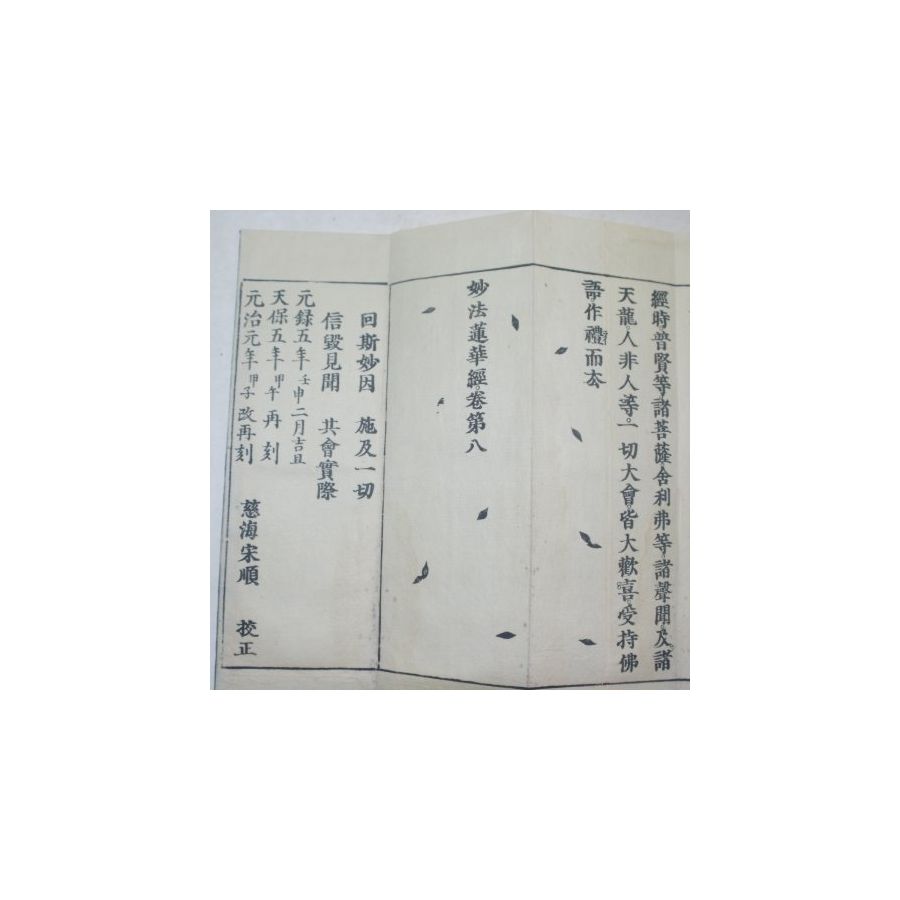 經時普賢等諸菩薩舍利弗等諸聲聞及諸
天龍人非人等一切大會皆大歡喜受持佛
語作禮而去
妙法蓮華經卷第八
回斯妙因　施及一切
信毀見聞　共會實際
元録五年壬申二月吉旦
天保五年甲午再刻
元治元年甲子改再刻　慈海宋順　挍正